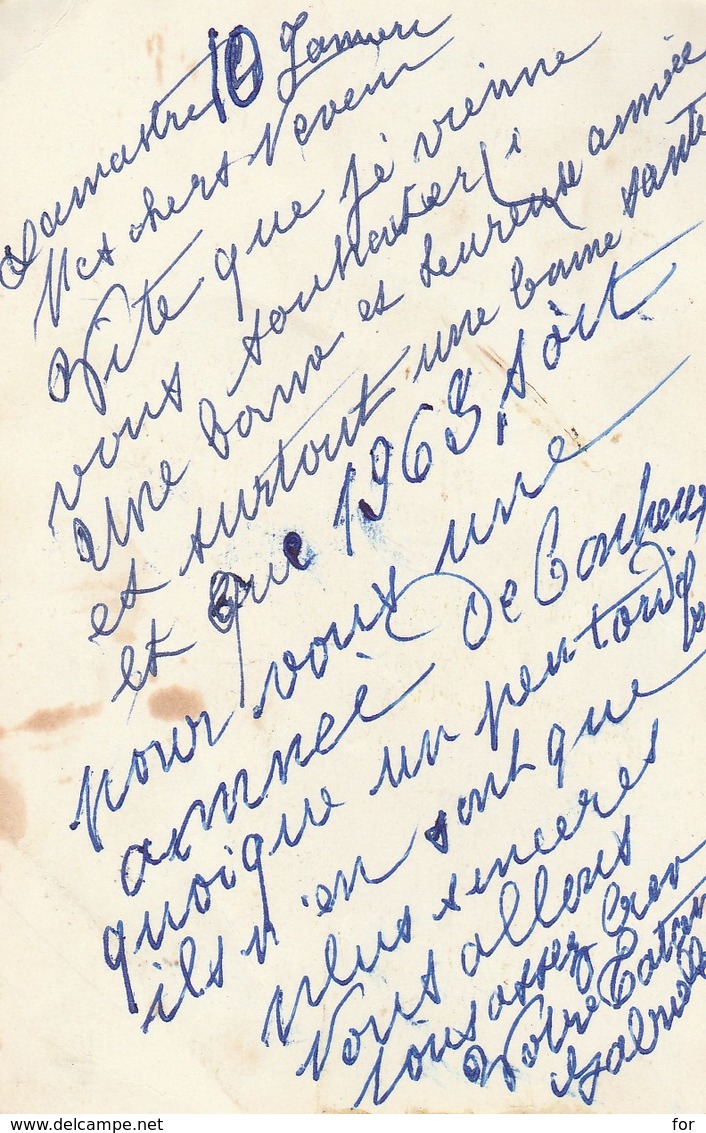 Lamastre 10 Janvier
Mes chers Neveux
Vite que je vienne
vous souhaiter
une bonne et heureuse année
et surtout une bonne santé
et que 1963, soit
pour vous une
année de bonheur
quoique un peu tardif
ils n'en sont que
plus sincères
Nous allons
tous assez bien
Votre Tatan
Gabrielle
www.delcampe.net
for